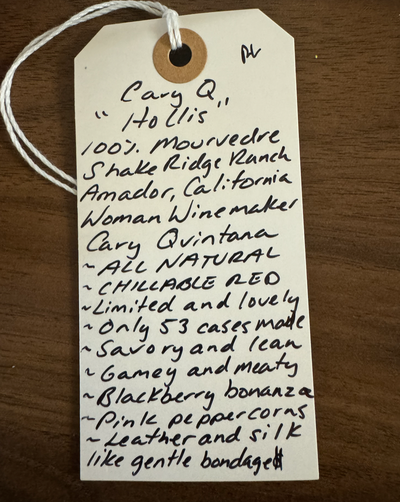 Cary Q
"Hollis"
100% Mourvedre
Shake Ridge Ranch
Amador, California
Woman Winemaker
Cary Quintana
~ ALL NATURAL
~ CHILLABLE RED
~ Limited and lovely
~ Only 53 cases made
~ Savory and lean
~ Gamey and meaty
~ Blackberry bonanza
~ Pink peppercorns
~ Leather and silk
like gentle bondage